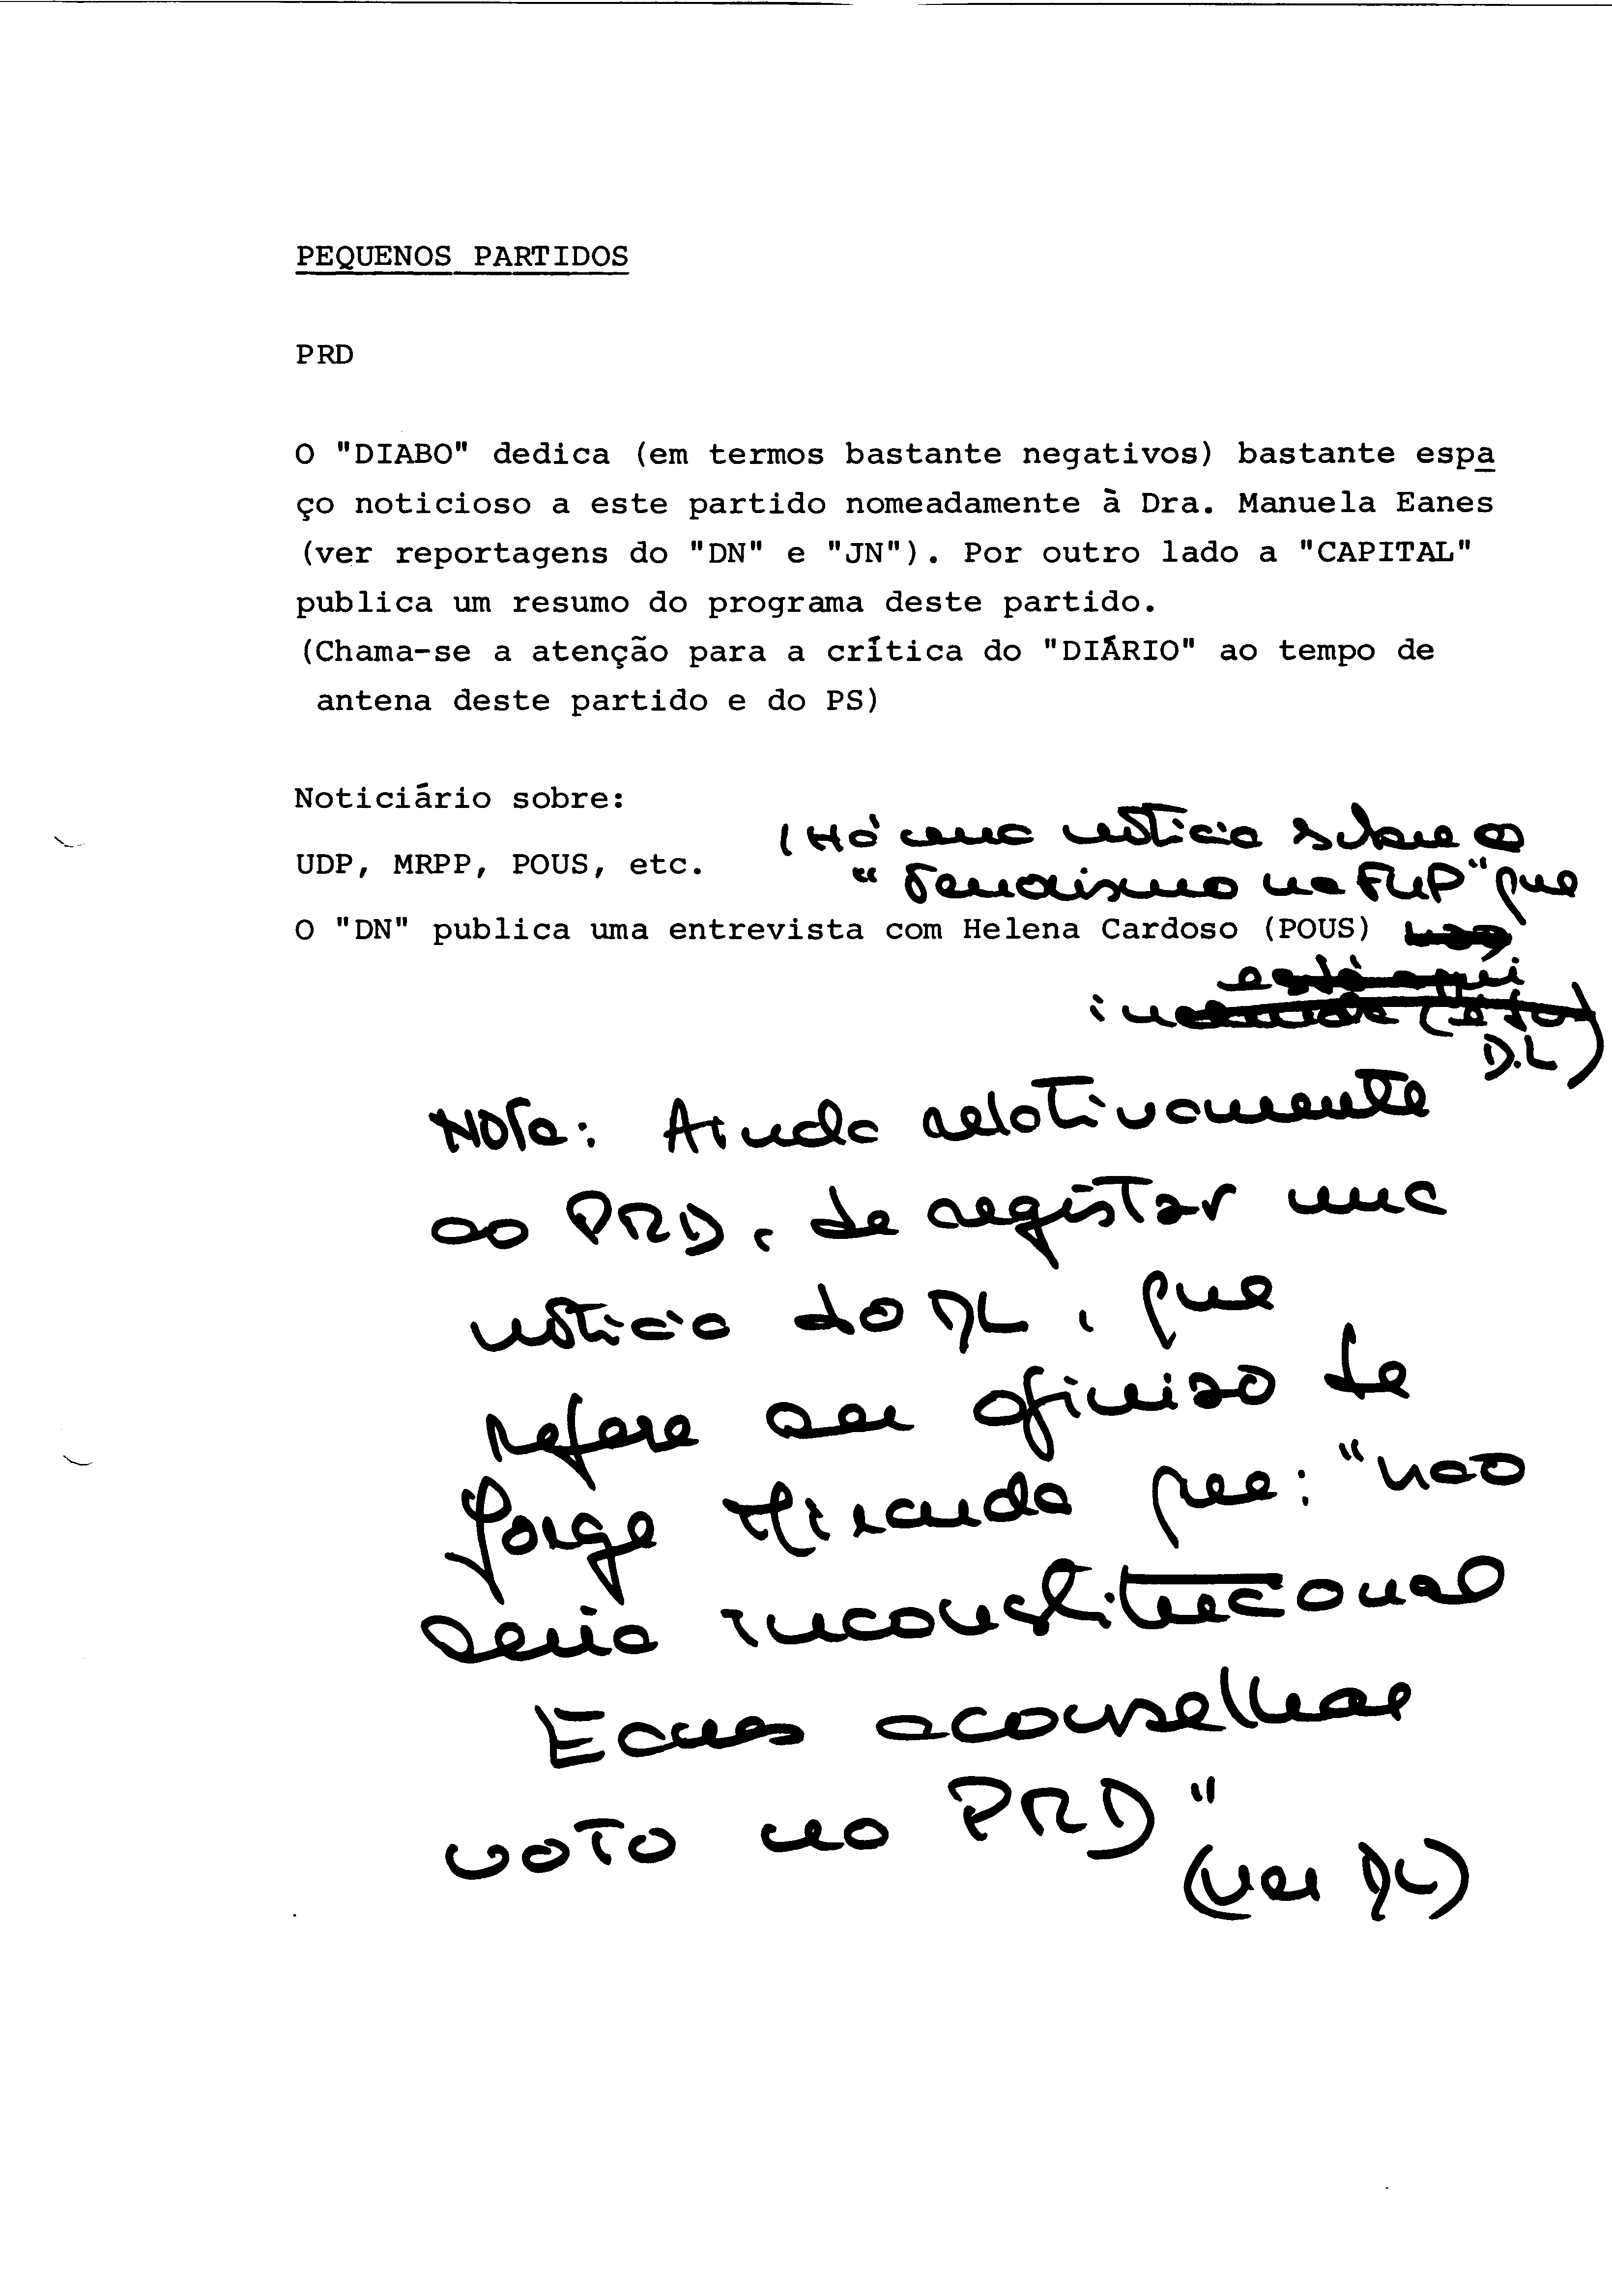 PEQUENOS PARTIDOS
PRD
O "DIABO" dedica (em termos bastante negativos) bastante espa
ço noticioso a este partido nomeadamente à Dra. Manuela Eanes
(ver reportagens do "DN" e "JN"). Por outro lado a "CAPITAL"
publica um resumo do programa deste partido.
(Chama-se a atenção para a crítica do "DIÁRIO" ao tempo de
antena deste partido e do PS)
Noticiário sobre:
(Há uma notícia sobre o
UDP, MRPP, POUS, etc.
" na FUP" que
O "DN" publica uma entrevista com Helena Cardoso (POUS) não
está aqui
D.L)
Nota: Ainda relativamente
ao PRD, de registar uma
notícia do DL, que
refere ser opinião de
Jorge Miranda que: "não
seria inconstitucional
Eanes aconselhar
voto no PRD"
(ver DL)